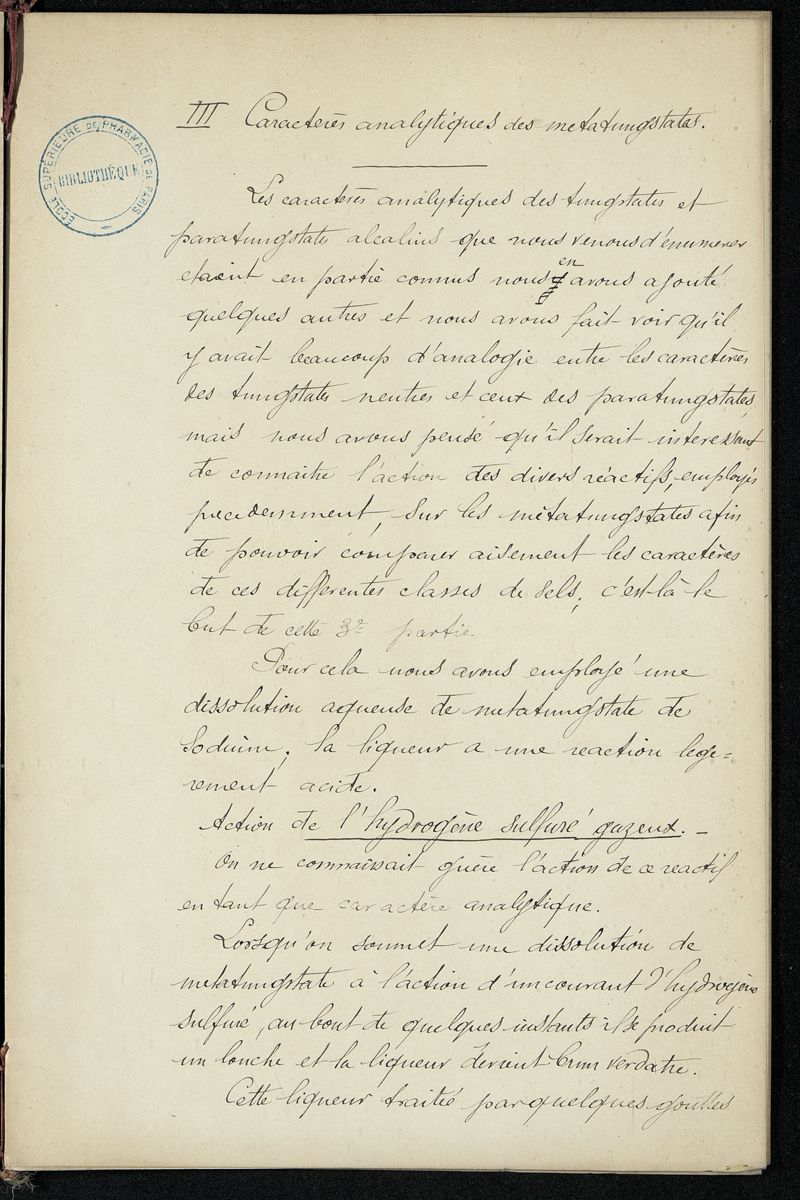 ÉCOLE SUPÉRIEURE DE PHARMACIE DE PARIS
BIBLIOTHÈQUE
III Caractères analytiques des metatungstates.
Les caractères analytiques des tungstates et
paratungstates alcalins que nous venons d'énumerer
etaient en partie connus nous en avons ajouté
quelques autres et nous avons fait voir qu'il
y avait beaucoup d'analogie entre les caractères
des tungstates neutres et ceux des paratungstates,
mais nous avons pensé qu'il serait interessant
de connaitre l'action des divers réactifs, employés
precedemment, sur les métatungstates afin
de pouvoir comparer aisement les caractères
de ces differentes classes de sels; c'est-là le
but de cette 3e partie
Pour cela nous avons employé une
dissolution aqueuse de metatungstate de
Sodium; la liqueur a une reaction lege=
rement acide.
Action de l'hydrogène sulfuré gazeux. _
On ne connaissait guère l'action de ce reactif
en tant que caractère analytique.
Lorsqu'on soumet une dissolution de
metatungstate à l'action d'un courant d'hydrogène
sulfuré, au bout de quelques instants il se produit
un louche et la liqueur devient brun verdatre.
Cette liqueur traitée par quelques gouttes